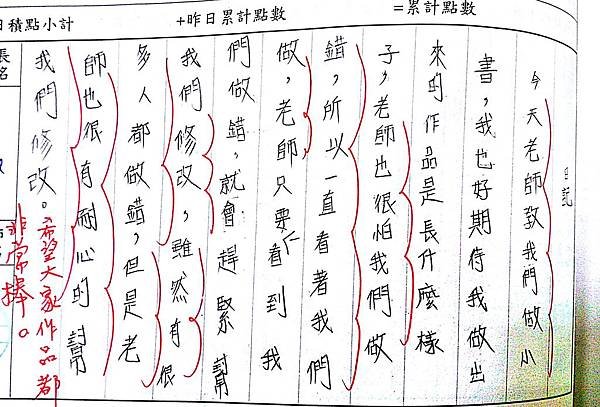 日積點小計 +昨日累計點數 =累計點數
日記
今天老師教我們做小
書，我也好期待我做出
來的作品是長什麼樣
子，老師也很怕我們做
錯，所以一直看著我們
做，老師只要看到我
們做錯，就會趕緊幫
我們修改，雖然有很
多人都做錯，但是老
師也很有耐心的幫
我們修改。希望大家作品都
非常棒。